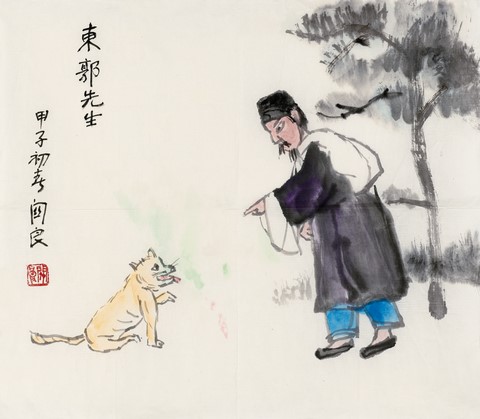 東郭先生
甲子初春 関良